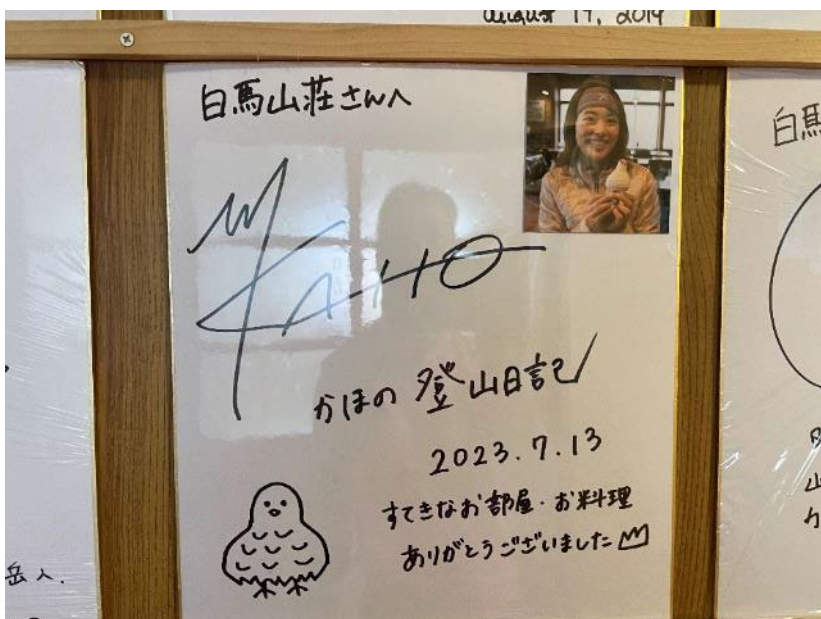 August 17, 2019
白馬山荘さんへ
KAHO
かほの登山日記
2023.7.13
すてきなお部屋・お料理
ありがとうございました
白馬
山
岳人.